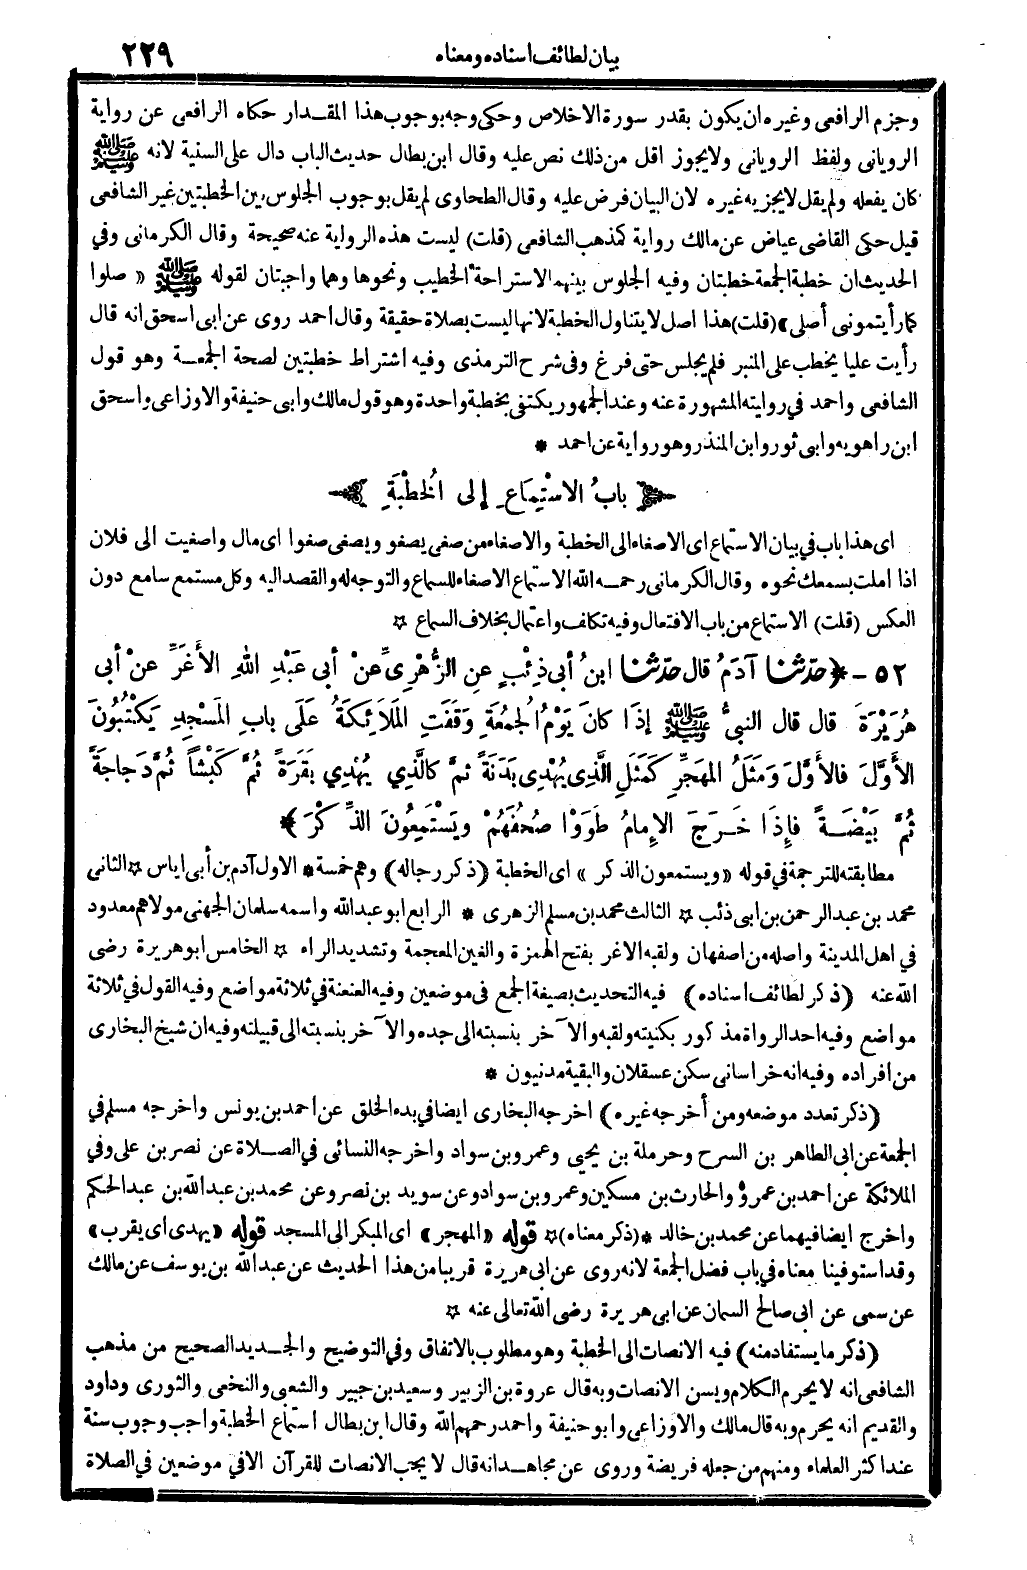 بيان لطائف اسناده ومعناه ٢٢٩
وجزم الرافعى وغيره ان يكون بقدر سورة الاخلاص وحكى وجه بوجوب هذا المقدار حكاه الرافعى عن رواية
الرويانى ولفظ الرويانى ولا يجوز اقل من ذلك نص عليه وقال ابن بطال حديث الباب دال على السنية لانه ﷺ
كان يفعله ولم يقل لا يجزيه غيره لان البيان فرض عليه وقال الطحاوى لم يقل بوجوب الجلوس بين الخطبتين غير الشافعى
قيل حكى القاضى عياض عن مالك رواية كمذهب الشافعى (قلت) ليست هذه الرواية عنه صحيحة وقال الكرمانى وفي
الحديث ان خطبة الجمعة خطبتان وفيه الجلوس بينهما لاستراحة الخطيب ونحوها وهما واجبتان لقوله ﷺ «صلوا
كما رأيتمونى أصلى» (قلت) هذا اصل لا يتناول الخطبة لانها ليست بصلاة حقيقة وقال احمد روى عن ابى اسحق انه قال
رأيت عليا يخطب على المنبر فلم يجلس حتى فرغ وفى شرح الترمذى وفيه اشتراط خطبتين لصحة الجمعة وهو قول
الشافعى واحمد في روايته المشهورة عنه وعند الجمهور يكتفى بخطبة واحدة وهو قول مالك وابى حنيفة والاوزاعى واسحق
ابن راهويه وابى ثور وابن المنذر وهو رواية عن احمد *
بابُ الاسْتِمَاعِ إلى الخُطْبَةِ
اى هذا باب في بيان الاستماع اى الاصغاء الى الخطبة والاصغاء من صغى يصغو ويصغى صغوا اى مال واصغيت الى فلان
اذا املت بسمعك نحوه وقال الكرمانى رحمه الله الاستماع الاصغاء للسماع والتوجه له والقصد اليه وكل مستمع سامع دون
العكس (قلت) الاستماع من باب الافتعال وفيه تكلف واعتمال بخلاف السماع ☆
٥٢ - ﴿حدثنا آدَمُ قال حدثنا ابنُ أبى ذِئْبٍ عنِ الزُّهْرِىِّ عنْ أبى عَبْدِ اللهِ الأَغَرِّ عنْ أبى
هُرَيْرَةَ قال قال النبىُّ ﷺ إذَا كانَ يَوْمُ الجُمعَةِ وَقَفَتِ المَلَائِكَةُ عَلَى بابِ المَسْجِدِ يَكْتُبُونَ
الأوَّلَ فالأوَّلَ وَمَثَلُ المهَجِّرِ كَمَثَلِ الَّذِى يُهْدِى بَدَنَةً ثمَّ كالَّذِي يُهْدِي بقَرَةً ثُمَّ كَبْشاً ثُمَّ دَجاجَةً
ثُمَّ بَيْضَةً فإِذَا خَرَجَ الإمامُ طَوَوْا صُحُفَهُمْ ويَسْتَمِعُونَ الذِّكْرَ﴾ *
مطابقته للترجمة في قوله «ويستمعون الذكر» اى الخطبة (ذكر رجاله) وهم خمسة * الاول آدم بن أبى اياس ☆ الثانى
محمد بن عبد الرحمن بن ابى ذئب ☆ الثالث محمد بن مسلم الزهرى * الرابع ابو عبد الله واسمه سلمان الجهنى مولاهم معدود
في اهل المدينة واصله من اصفهان ولقبه الاغر بفتح الهمزة والغين المعجمة وتشديد الراء ☆ الخامس ابو هريرة رضى
الله عنه (ذكر لطائف اسناده) فيه التحديث بصيغة الجمع فى موضعين وفيه العنعنة في ثلاثة مواضع وفيه القول في ثلاثة
مواضع وفيه احد الرواة مذكور بكنيته ولقبه والآخر بنسبته الى جده والآخر بنسبته الى قبيلته وفيه ان شيخ البخارى
من افراده وفيه انه خراسانى سكن عسقلان والبقية مدنيون *
(ذكر تعدد موضعه ومن أخرجه غيره) اخرجه البخارى ايضا في بدء الخلق عن احمد بن يونس واخرجه مسلم في
الجمعة عن ابى الطاهر بن السرح وحرملة بن يحيى وعمرو بن سواد واخرجه النسائى في الصلاة عن نصر بن على وفي
الملائكة عن احمد بن عمرو والحارث بن مسكين وعمرو بن سواد وعن سويد بن نصر وعن محمد بن عبد الله بن عبد الحكم
واخرج ايضا فيهما عن محمد بن خالد * (ذكر معناه) ☆ قوله «المهجر» اى المبكر الى المسجد قوله «يهدى اى يقرب»
وقد استوفينا معناه في باب فضل الجمعة لانه روى عن ابى هريرة قريبا من هذا الحديث عن عبد الله بن يوسف عن مالك
عن سمى عن ابى صالح السمان عن ابى هريرة رضى الله تعالى عنه ☆
(ذكر ما يستفاد منه) فيه الانصات الى الخطبة وهو مطلوب بالاتفاق وفي التوضيح والجديد الصحيح من مذهب
الشافعى انه لا يحرم الكلام ويسن الانصات وبه قال عروة بن الزبير وسعيد بن جبير والشعبى والنخعى والثورى وداود
والقديم انه يحرم وبه قال مالك والاوزاعى وابو حنيفة واحمد رحمهم الله وقال ابن بطال استماع الخطبة واجب وجوب سنة
عند اكثر العلماء ومنهم من جعله فريضة وروى عن مجاهد انه قال لا يجب الانصات للقرآن الا في موضعين في الصلاة